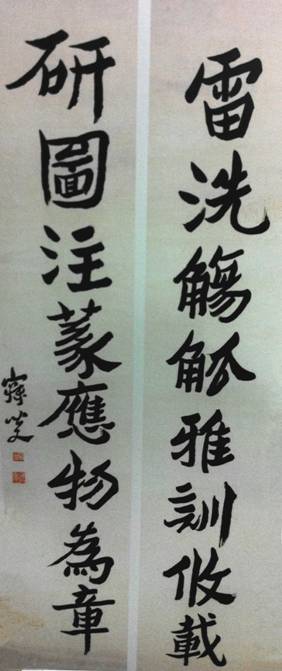 雷洗觴觚雅訓攸載
研圖注篆應物為章
寐叟